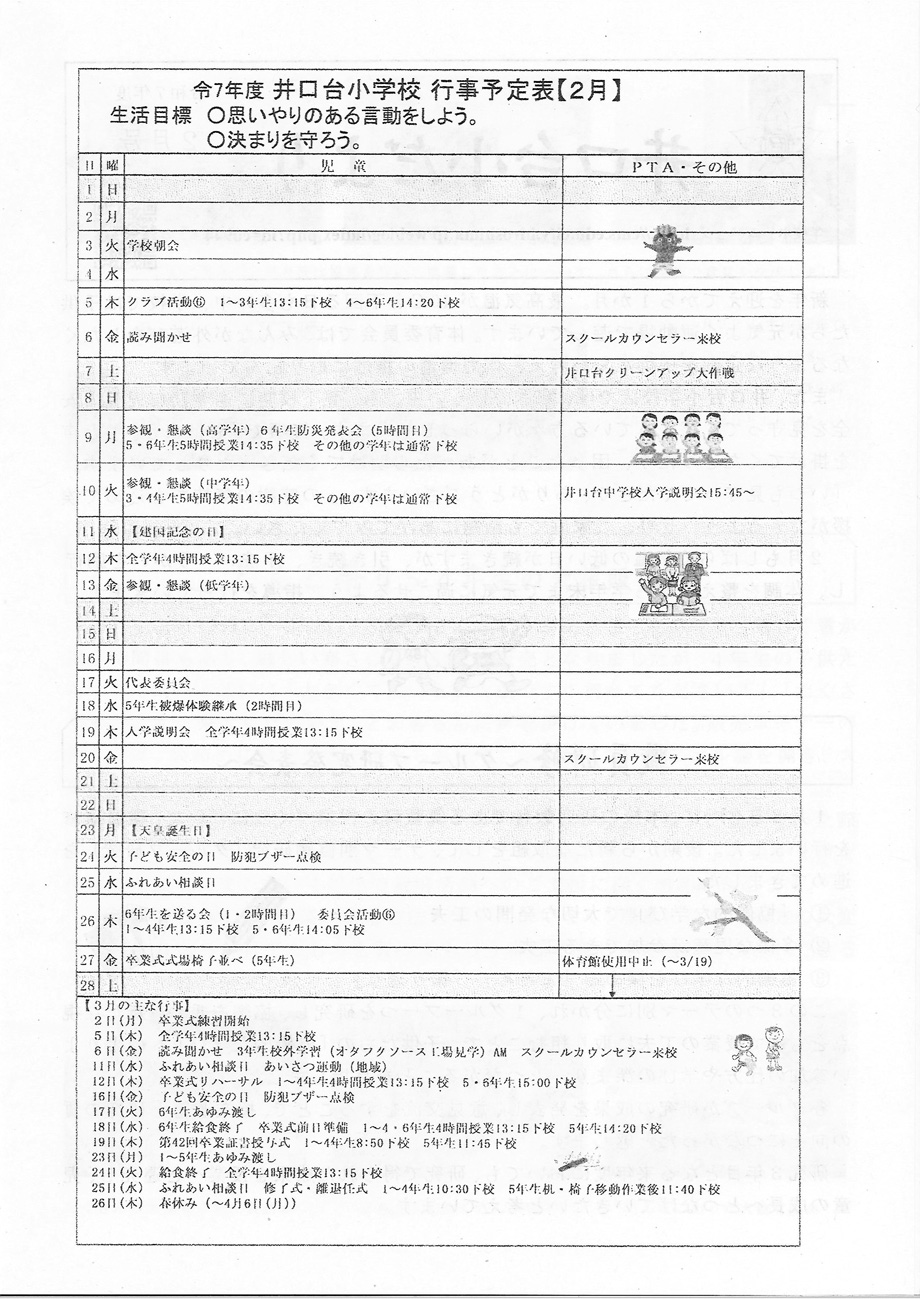 令7年度 井口台小学校 行事予定表【2月】
生活目標 ○思いやりのある言動をしよう。
○決まりを守ろう。
日 曜 児 童 PTA・その他
1 日
2 月
3 火 学校朝会
4 水
5 木 クラブ活動⑥ 1～3年生13:15下校 4～6年生14:20下校
6 金 読み聞かせ スクールカウンセラー来校
7 土 井口台クリーンアップ大作戦
8 日
9 月 参観・懇談（高学年）6年生防災発表会（5時間目）
5・6年生5時間授業14:35下校 その他の学年は通常下校
10 火 参観・懇談（中学年）
3・4年生5時間授業14:35下校 その他の学年は通常下校 井口台中学校入学説明会15:45～
11 水 【建国記念の日】
12 木 全学年4時間授業13:15下校
13 金 参観・懇談（低学年）
14 土
15 日
16 月
17 火 代表委員会
18 水 5年生被爆体験継承（2時間目）
19 木 入学説明会 全学年4時間授業13:15下校
20 金 スクールカウンセラー来校
21 土
22 日
23 月 【天皇誕生日】
24 火 子ども安全の日 防犯ブザー点検
25 水 ふれあい相談日
26 木 6年生を送る会（1・2時間目） 委員会活動⑥
1～4年生13:15下校 5・6年生14:05下校
27 金 卒業式式場椅子並べ（5年生） 体育館使用中止（～3/19）
28 土
【3月の主な行事】
2日（月） 卒業式練習開始
5日（木） 全学年4時間授業13:15下校
6日（金） 読み聞かせ 3年生校外学習（オタフクソース工場見学）AM スクールカウンセラー来校
11日（水） ふれあい相談日 あいさつ運動（地域）
12日（木） 卒業式リハーサル 1～4年生4時間授業13:15下校 5・6年生15:00下校
16日（金） 子ども安全の日 防犯ブザー点検
17日（火） 6年生あゆみ渡し
18日（水） 6年生給食終了 卒業式前日準備 1～4・6年生4時間授業13:15下校 5年生14:20下校
19日（木） 第42回卒業証書授与式 1～4年生8:50下校 5年生11:45下校
23日（月） 1～5年生あゆみ渡し
24日（火） 給食終了 全学年4時間授業13:15下校
25日（水） ふれあい相談日 修了式・離退任式 1～4年生10:30下校 5年生机・椅子移動作業後11:40下校
26日（木） 春休み（～4月6日（月））